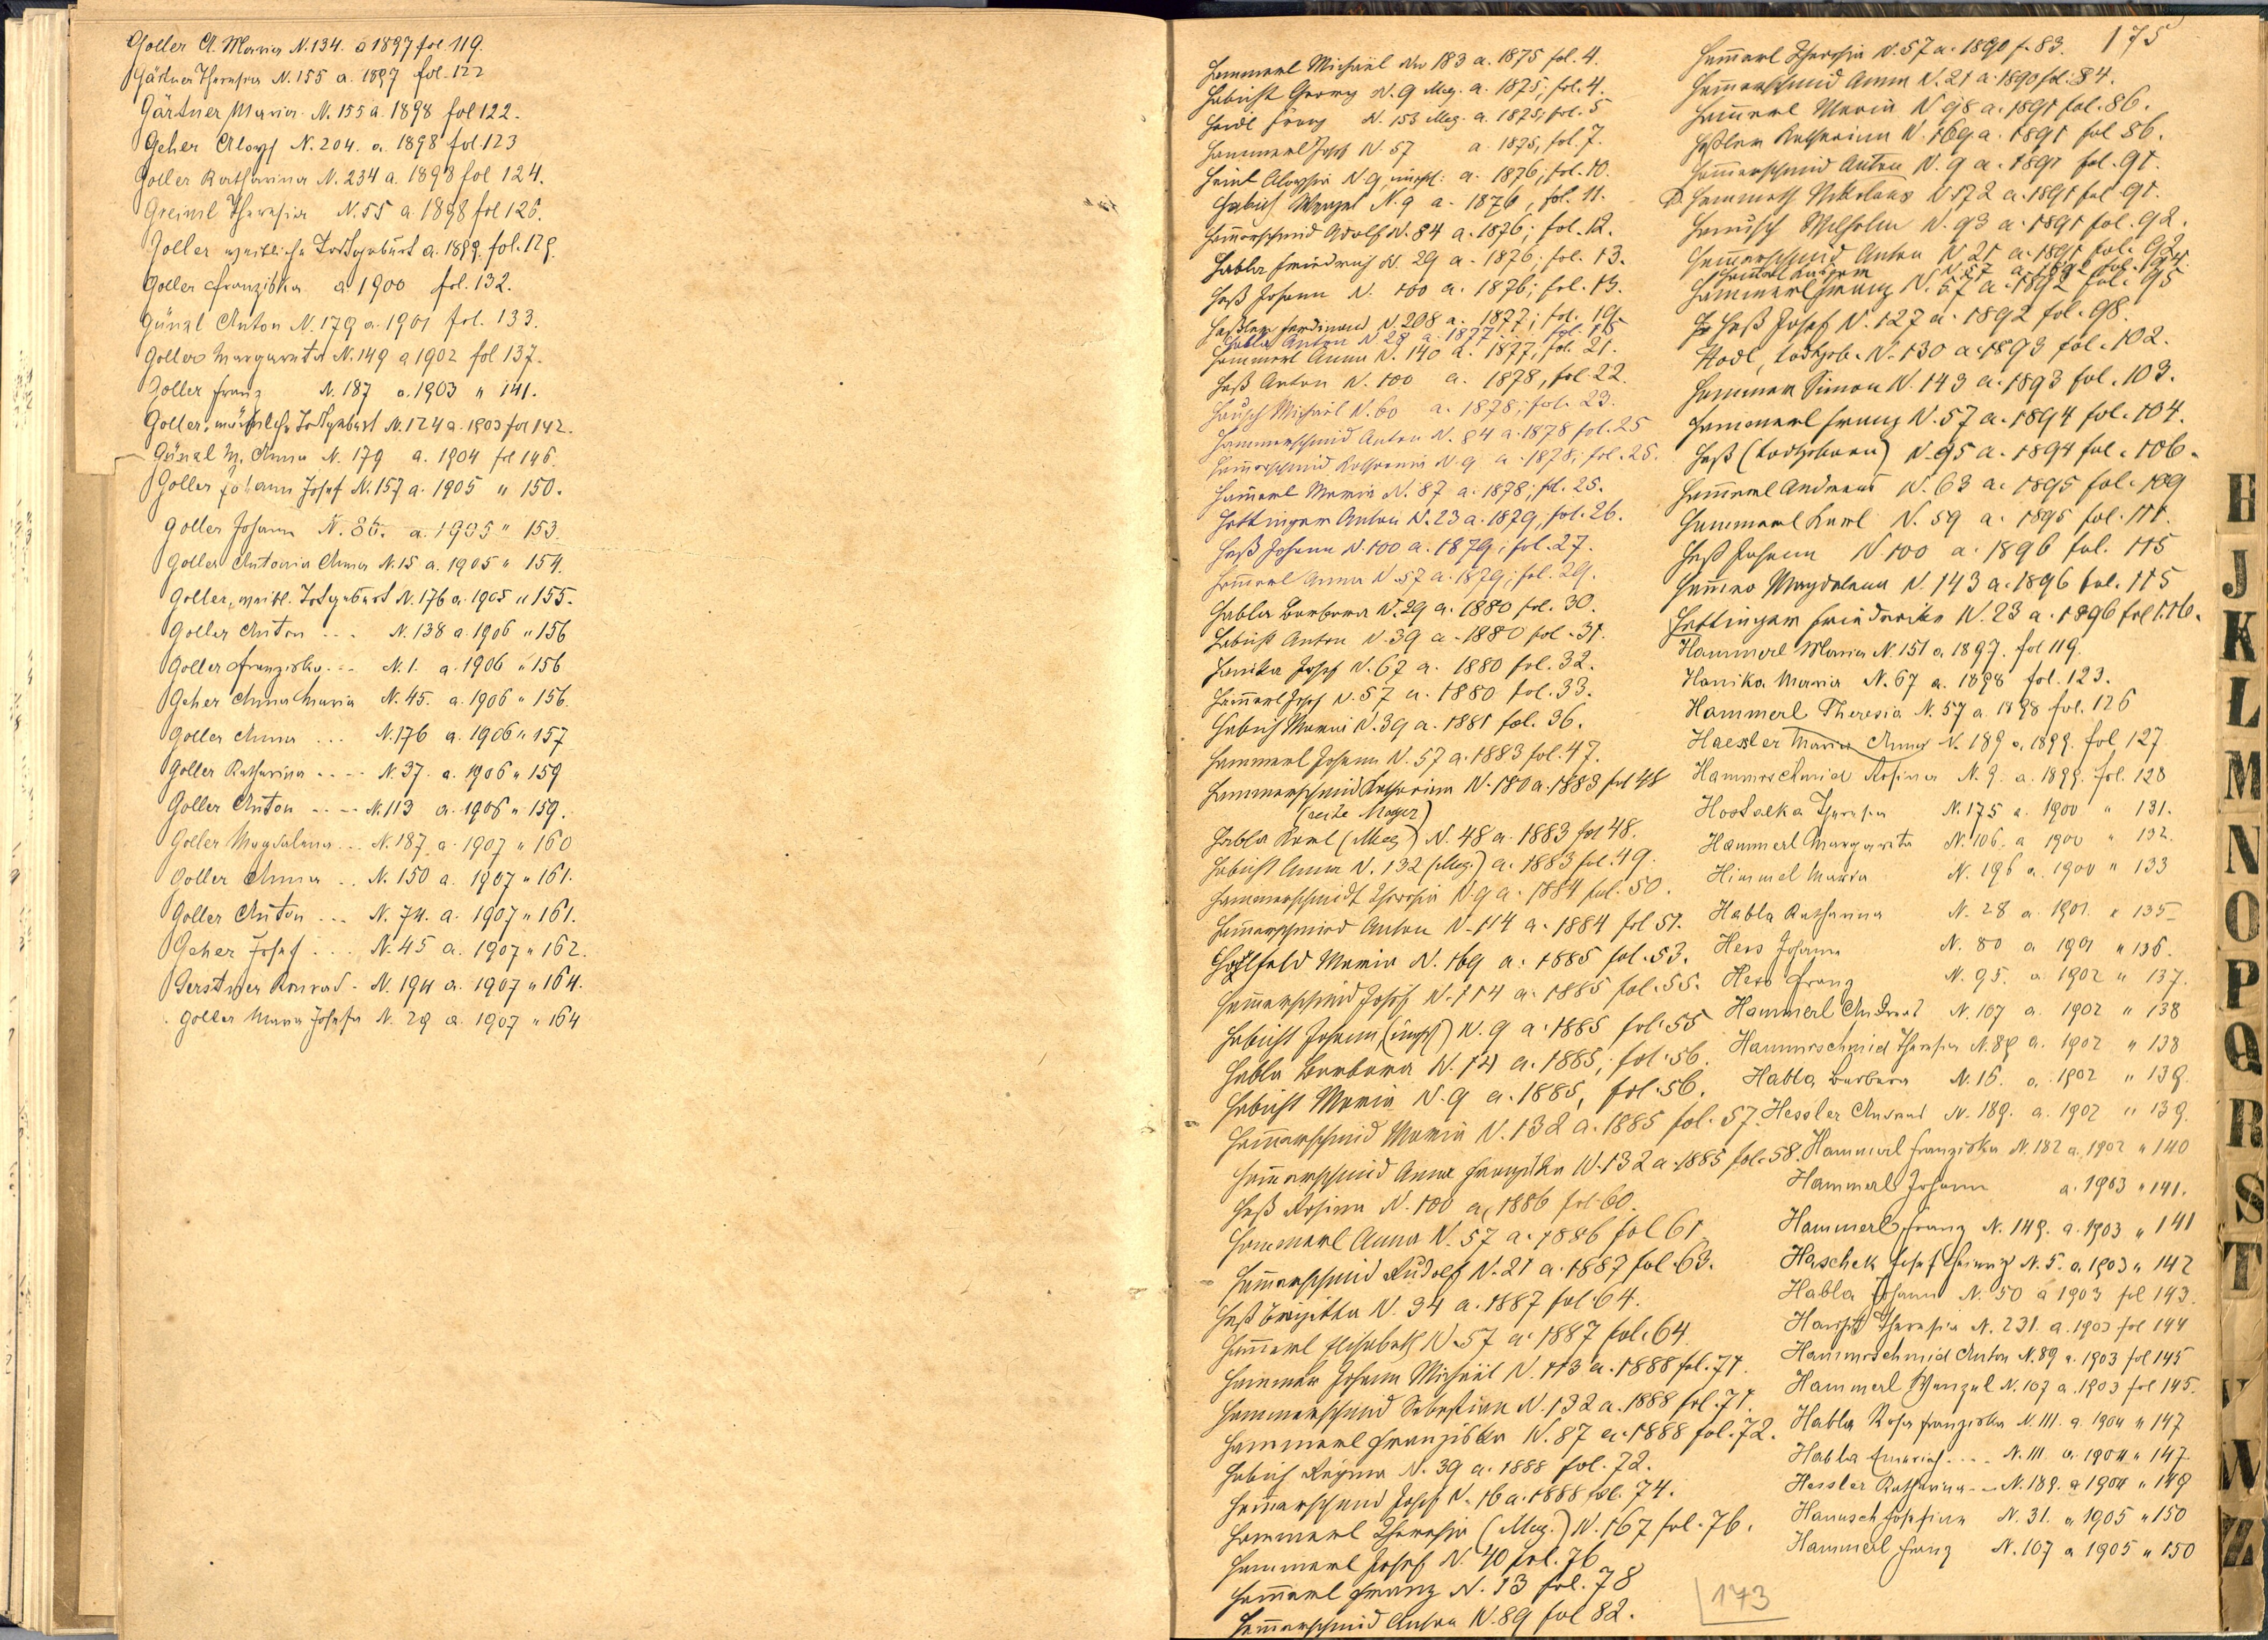 Goller A. Maria N. 134. a 1897 fol. 119.
Gärtner Theresia N. 155 a. 1897 fol. 122
Gärtner Maria N. 155 a. 1898 fol 122.
Geher Aloys N. 204. a. 1898 fol. 123
Goller Katharina N. 234 a. 1898 fol 124.
Greiml Theresia N. 55 a. 1898 fol 126.
Goller weibliche Todtgeburt a. 1899. fol. 129.
Goller Franziska a 1900 fol. 132.
Günzl Anton N. 179 a. 1901 fol. 133.
Goller Margareta N. 149 a 1902 fol 137.
Goller Franz N. 187 a. 1903 " 141.
Goller, männliche Todtgeburt N. 124 a. 1903 fol 142.
Günzl M. Anna N. 179 a. 1904 fol 146.
Goller Johann Josef N. 157 a. 1905 " 150.
Goller Johann N. 86. a. 1905 " 153.
Goller Antonia Anna N. 15 a. 1905 " 154.
Goller, weibl. Todtgeburt N. 176 a. 1905 " 155.
Goller Anton ... N. 138 a. 1906 " 156
Goller Franziska ... N. 1. a. 1906 " 156
Geher Anna Maria N. 45. a. 1906 " 156.
Goller Anna ... N. 176 a. 1906 " 157
Goller Katharina .... N. 37. a. 1906 " 159
Goller Anton .... N. 113 a. 1906 " 159.
Goller Magdalena ... N. 187 a. 1907 " 160
Goller Anna .. N. 150 a. 1907 " 161.
Goller Anton ... N. 74. a. 1907 " 161.
Geher Josef ... N. 45 a. 1907 " 162.
Gerstner Konrad - N. 194 a. 1907 " 164.
Goller Maria Josefa N. 29 a. 1907 " 164
Hammerl Michael No 183 a. 1875 fol. 4.
Habicht Georg N. 9 Meg. a. 1875; fol. 4.
Heidl Franz N. 153 Meg. a. 1875; fol. 5
Hammerl Josef N. 57 a. 1875, fol. 7.
Heinl Aloysia N 9, a. 1876, fol. 10.
Habich Wenzel N. 9 a. 1876, fol. 11.
Hammerschmid Adolf N. 84 a. 1876; fol. 12.
Habla Friedrich N. 29 a. 1876; fol. 13.
Heß Johann N. 100 a. 1876; fol. 13.
Heßler Ferdinand N 208 a. 1877; fol. 19
Habla Anton N 28 a. 1877 fol. 18
Hammerl Anna N. 140 a. 1877, fol. 21.
Heß Anton N. 100 a. 1878, fol. 22.
Hausch Michael N. 60 a. 1878; fol. 23.
Hammerschmid Anton N. 84 a. 1878 fol. 25
Hammerschmid Katharina N. 9 a. 1878; fol. 25.
Hammerl Maria N. 87 a. 1878; fol. 25.
Hettinger Anton N. 23 a. 1879, fol. 26.
Heß Johann N. 100 a. 1879; fol. 27.
Hammerl Anna N. 57 a. 1879; fol. 29.
Habla Barbara N. 29 a. 1880 fol. 30.
Habicht Anton N. 39 a. 1880 fol. 31.
Hanika Josef N. 67 a. 1880 fol. 32.
Hammerl Josef N. 57 a. 1880 fol. 33.
Habich Maria N. 39 a. 1881 fol. 36.
Hammerl Johann N. 57 a. 1883 fol. 47.
Hammerschmid Katharina N. 180 a. 1883 fol 48
(recte Mayer)
Habla Karl (Meg) N. 48 a. 1883 fol 48.
Habicht Anna N. 132 (Meg.) a. 1883 fol. 49.
Hammerschmidt Theresia N. 9 a. 1884 fol. 50.
Hammerschmied Anton N. 114 a. 1884 fol 51.
Maria N. 169 a. 1885 fol. 53.
Hammerschmid Josef N. 114 a. 1885 fol. 55.
Habicht Johann, N. 9 a. 1885 fol. 55
Habla Barbara N. 14 a. 1885, fol. 56.
Habicht Maria N. 9 a. 1885, fol. 56.
Hammerschmid Maria N. 132 a. 1885 fol. 57.
Hammerschmid Anna Franziska N. 132 a. 1885 fol. 58.
Heß Rosina N. 100 a, 1886 fol. 60.
Hammerl Anna N. 57 a. 1886 fol 61
Hammerschmid Rudolf N. 21 a. 1887 fol. 63.
Heß Brigitta N. 34 a. 1887 fol. 64.
Hammerl Elisabeth N. 57 a. 1887 fol. 64
Hammer Johann Michael N. 113 a. 1888 fol. 71.
Hammerschmid Sebastian N. 132 a. 1888 fol. 71.
Hammerl Franziska N. 87 a. 1888 fol. 72.
Habich Regina N. 39 a. 1888 fol. 72.
Hammerschmid Josef N. 16 a. 1888 fol. 74.
Hammerl Theresia (Meg.) N. 167 fol. 76.
Hammerl Josef N. 40 fol. 76
Hammerl Franz N. 13 fol. 78
Hammerschmid Anton N. 89 fol 82.
175
Hammerl Theresia N. 57 a. 1890 f. 83.
Hammerschmid Anna N. 21 a. 1890 fol. 84.
Hammerl Maria N 98 a. 1891 fol. 86.
Heßler Katharina N. 169 a. 1891 fol 86.
Hammerschmid Anton N. 9 a. 1891 fol. 91.
Nikolaus N 172 a. 1891 fol 91.
Hanusch Wilhelm N. 93 a. 1891 fol. 92.
Hammerschmid Anton N. 21 a. 1891 fol. 92
Hammerl N 57 a. 1892 fol.
Hammerl Franz N. 57 a. 1892 fol. 95
Heß Josef N. 127 a. 1892 fol. 98.
Hodl, todtgeb. N. 130 a. 1893 fol. 102.
Hammer Simon N. 143 a. 1893 fol. 103.
Hammerl Franz N. 57 a. 1894 fol. 104.
Heß (todtgeboren) N. 95 a. 1894 fol. 106.
Hammerl Andreas N. 63 a. 1895 fol. 109
Hammerl Karl N. 59 a. 1895 fol. 111.
Heß Johann N. 100 a. 1896 fol. 115
Hammer Magdalena N. 143 a. 1896 fol. 115
Hettinger Friedericke N. 23 a. 1896 fol 116.
Hammerl Maria N 151 a 1897. fol 119.
Hanika Maria N. 67 a. 1898 fol. 123.
Hammerl Theresia N. 57 a 1898 fol. 126
Haessler Maria Anna N. 189 a. 1899. fol. 127
Hammerschmid Rosina N. 9. a. 1899. fol. 128
Hostalka Theresia N. 175 a. 1900 " 131.
Hammerl Margareta N. 106. a 1900 " 132.
Himmel Maria N. 196 a. 1900 " 133
Habla Katharina N. 28 a. 1901. " 135
Hess Johann N. 80 a 1901 " 136.
Hess Franz N. 95. a. 1902 " 137.
Hammerl Andreas N. 107 a. 1902 " 138
Hammerschmid Theresia N. 89 a. 1902 " 138
Habla Barbara N. 16. a. 1902 " 139.
Hessler Andreas N. 189. a. 1902 " 139.
Hammerl Franziska N. 182 a. 1902 " 140
Hammerl Johann a. 1903 " 141.
Hammerl Franz N. 149. a. 1903 " 141
Haschek Josef N. 5. a. 1903 " 142
Habla Johann N. 50 a 1903 fol 143.
Theresia N. 231. a. 1903 fol 144
Hammerschmid Anton N. 89 a. 1903 fol 145
Hammerl Wenzel N. 107 a. 1903 fol 145.
Habla Rosa Franziska N. 111. a. 1904 " 147
Habla Emerich .... N. 111. a. 1904 " 147
Hessler Katharina -- N. 189. a 1904 " 149
Hanusch Josefine N. 31. a 1905 " 150
Hammerl Franz N. 107 a 1905 " 150
173
H
J
K
L
M
N
O
P
Q
R
S
T
V
W
Z